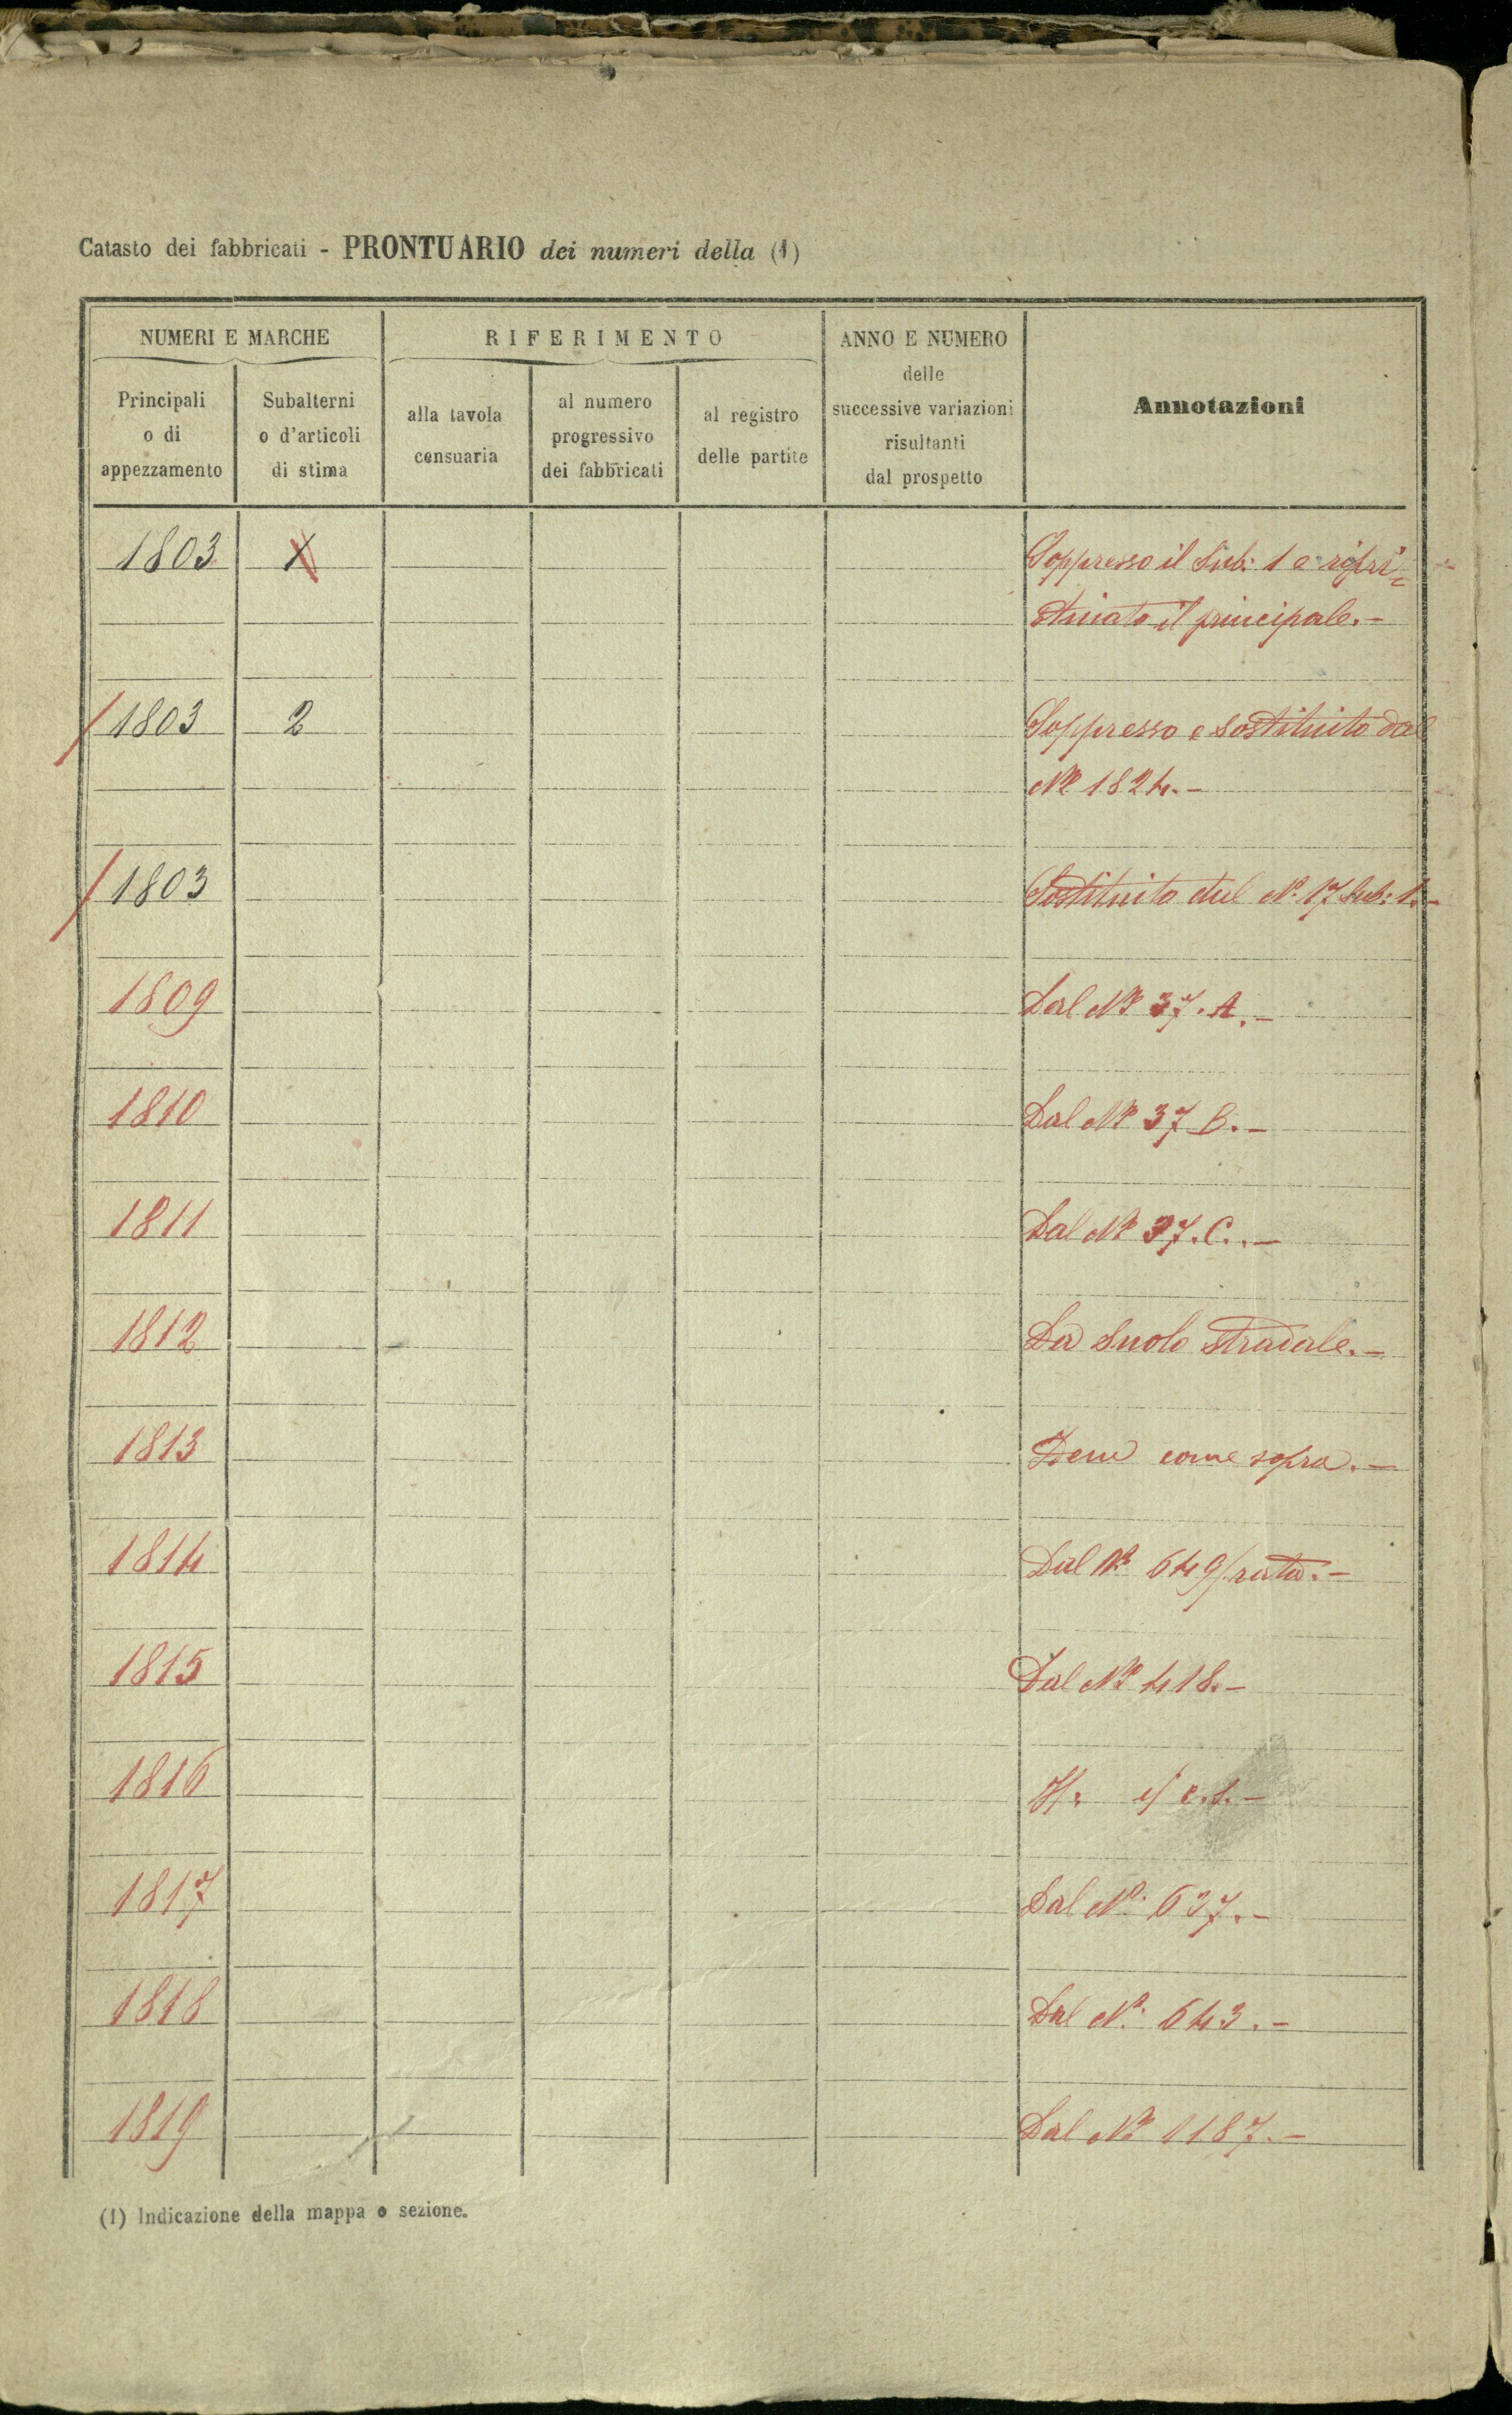 Catasto dei fabbricati - PRONTUARIO dei numeri della (1)
NUMERI E MARCHE
RIFERIMENTO
ANNO E NUMERO
delle
successive variazioni
risultanti
dal prospetto
Annotazioni
Principali
o di
appezzamento
Subalterni
o d'articoli
di stima
alla tavola
censuaria
al numero
progressivo
dei fabbricati
al registro
delle partite
1803 1 Soppresso il Sub: 1 e ripri=
stinato il principale.-
1803 2 Soppresso e sostituito dal
N° 1824.-
1803 Sostituito dal N° 17 Sub: 1.-
1809 Dal N° 37. A.-
1810 Dal N° 37 B.-
1811 Dal N° 37. C..-
1812 Da Suolo stradale.-
1813 Idem come sopra.-
1814 Dal N° 649/rata.-
1815 Dal N° 418.-
1816 c.s.-
1817 Dal N° 637.-
1818 Dal N° 643.-
1819 Dal N° 1187.-
(1) Indicazione della mappa o sezione.